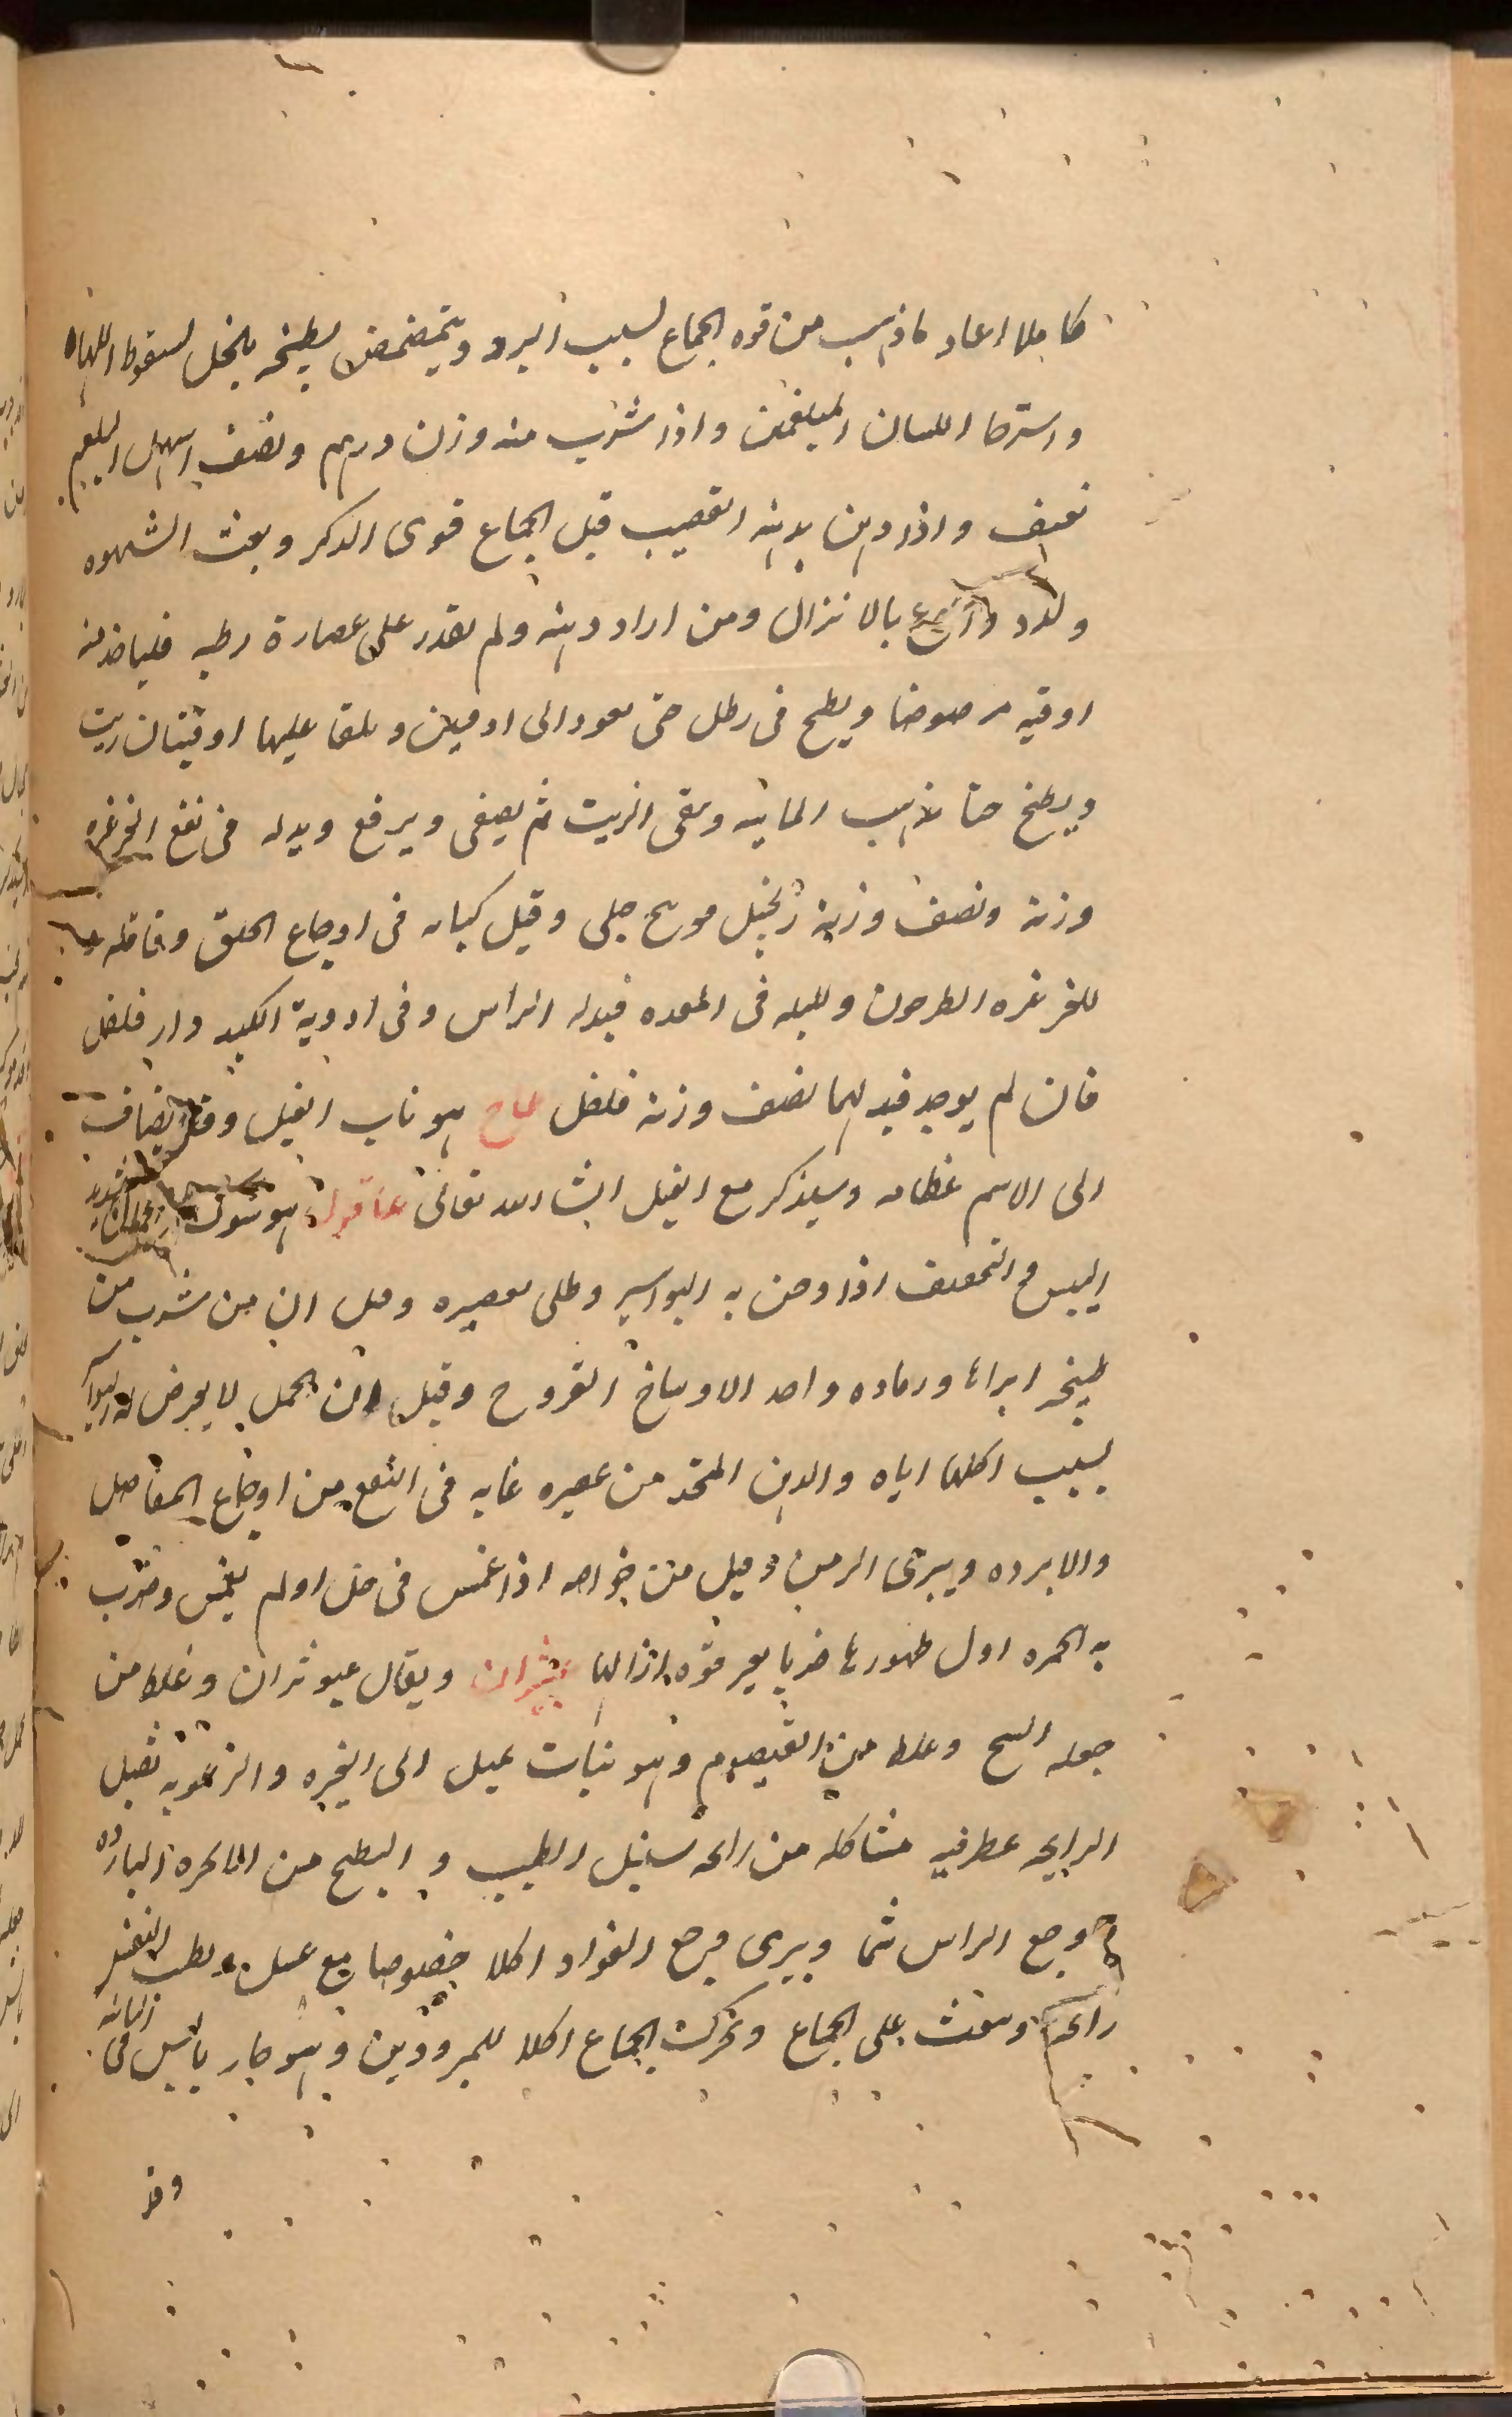 كاملا اعاد ما ذهب من قوه الجماع لسبب البرد ويتمضمض بطبيخه بالخل لسقوط اللهاه
واسترخا اللسان البلغمى واذا شرب منه وزن درهم ونصف اسهل البلغم
بعنف واذا دهن بدهنه القضيب قبل الجماع قوى الذكر وبعث الشهوه
ولذذ واسرع بالانزال ومن اراد دهنه ولم يقدر على عصارة رطبه فلياخذ منه
اوقيه مرضوضا ويطبخ فى رطل حتى يعود الى اوقيتين ويلقا عليها اوقيتان زيت
ويطبخ حتا تذهب المائيه ويبقى الزيت ثم يصفى ويرفع وبدله فى نفع الغرغره
وزنه ونصف وزنه زنجبيل مويزج جبلى وقيل كبابه فى اوجاع الحلق وقاقله
للغرغره الطرخون وللبله فى المعده فبدله الراسن وفى ادوية الكبد دار فلفل
فان لم يوجد فبدلهما نصف وزنه فلفل عاج هو ناب الفيل وقد يضاف
الى الاسم عظامه وسيذكر مع الفيل انشا الله تعالى عاقول هو شوك الجمال شديد
اليبس والتجفيف اذا دخن به البواسير وطلى بعصيره وقيل ان من شرب من
طبيخه ابراها ورماده واحد الاوساخ القروح وقيل ان الجمل لا يعرض له البواسير
بسبب اكلها اياه والدهن المتخذ من عصيره غايه فى النفع من اوجاع المفاصل
والابرده ويبرى الزمن وقيل من خواصه اذا غمس فى خل او لم يغمس وضرب
به الحمره اول ظهورها ضربا بغير قوه ازالها عبثران ويقال عبوثران وغلط من
جعله الشيح وغلط من القيصوم وهو نبات يميل الى الغبره والزغوبه ثقيل
الرايحه عطرفيه مشاكله من رائحه سنبل الطيب والبطيخ من الابخره البارده
وجع الراس شما ويبرى وجع الفواد اكلا خصوصا مع عسل ويطيب النفس
رائحه ويبعث على الجماع ويحرك الجماع اكلا للمبرودين وهو حار يابس فى الثانيه
وقد